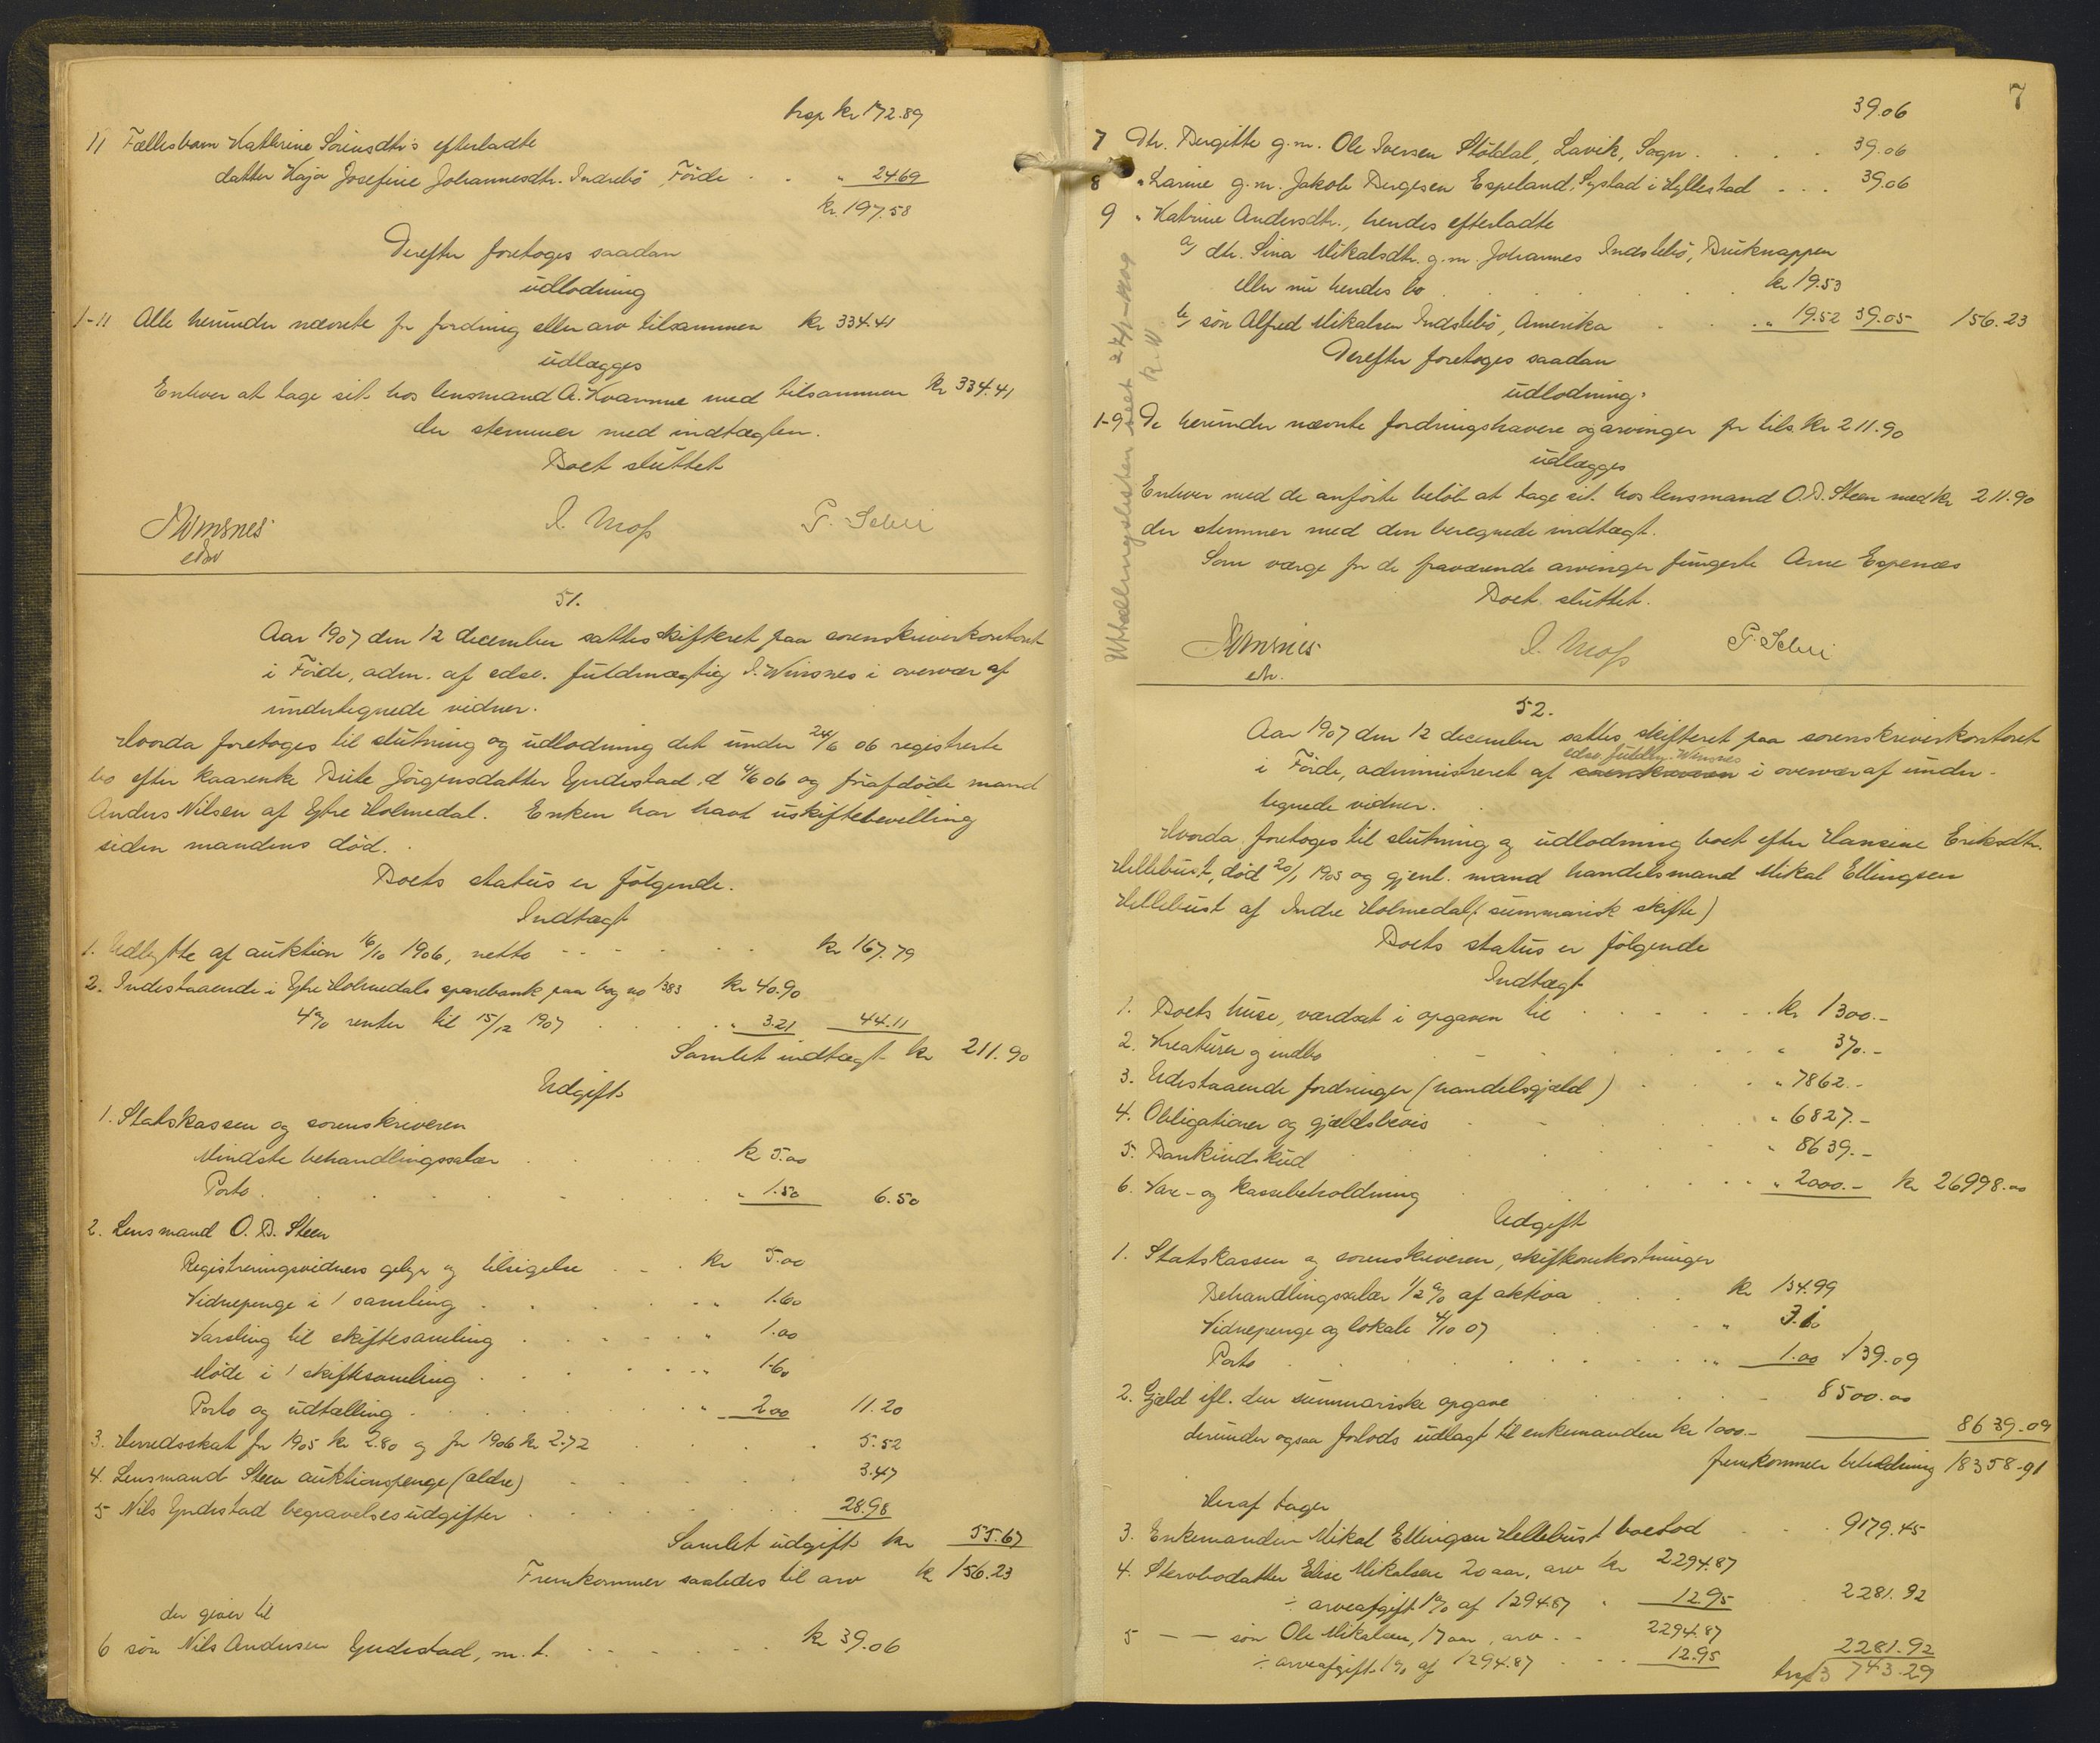 trsp kr 172.89
11 Fællesbarn Kathrine Sørensdtr's efterladte
datter Kaja Josefine Johannesdtr. Indrebö Förde . . " 24.69
kr. 197.58
Derefter foretoges saadan
udlodning
1-11 Alle herunder nævnte for fordring eller arv tilsammen kr 334.41
udlægges
Enhver at tage sit hos lensmand A. Kvamme med tilsammen kr 334.41
der stemmer med indtægten.
Boet sluttet
Winsnes
edsv
I. Moss
P. Schei
51.
Aar 1907 den 12 december sattes skifteret paa sorenskriverkontoret
i Förde, adm. af edsv. fuldmægtig I. Winsnes i overvær af
undertegnede vidner.
Hvorda foretoges til slutning og udlodning det under 24/6 06 registrerte
bo efter kaarenke Brite Jörgensdatter Gjndestad, d 4/6 06 og forafdöde mand
Anders Nilsen af Ytre Holmedal. Enken har havt uskiftebevilling
siden mandens död.
Boets status er fölgende.
Indtægt
1. Udbytte af auktion 16/10 1906, netto - - - . . kr 167.79
2. Indestaaende i Ytre Holmedals sparebank paa bog no 1383 kr 40.90
4% renter til 15/12 1907 . . . . " 3.21 44.11
Samlet indtægt kr 211.90
Udgift
1. Statskassen og sorenskriveren
Mindste behandlingssalær . . . . kr 5.00
Porto . . . . . . " 1.50 6.50
2. Lensmand O. B. Steen
Registreringsvidners gebyr og tilsigelse . . . kr 5.00
Vidnepenge i 1 samling . . . . " 1.60
Varsling til skiftesamling . . . . " 1.00
Möde i 1 skiftesamling . . . . " 1.60
Porto og udtælling . . . . . " 2.00 11.20
3. Herredsskat for 1905 kr 2.80 og for 1906 kr 2.72 . . . . 5.52
4. Lensmand Steen auktionspenge (ældre) . . . . 3.47
5 Nils Gjndestad begravelsesudgifter . . . . . 28.98
Samlet udgift kr 55.67
Fremkommer saaledes til arv kr 156.23
der giver til
6 sön Nils Andersen Gjndestad, m. t. . . . . . kr 39.06
7
39.06
7 Dtr. Bergitte g.m. Ole Iversen Stöldal, Lavik, Sogn . . . . 39.06
8 " Larine g.m. Jakob Bergesen Espeland, Systad i Hyllestad . . . 39.06
9 " Katrine Andersdtr., hendes efterladte
a, dtr. Sina Mikalsdtr. g.m. Johannes Indrebö, Bruknappen
eller nu hendes bo . . . . . . kr 19.53
b, sön Alfred Mikalsen Indrebö, Amerika . . . " 19.52 39.05 156.23
Derefter foretoges saadan
udlodning.
1-9 De herunder nævnte fordringshavere og arvinger for tils. kr 211.90
udlægges
Enhver med de anförte belöb at tage sit hos lensmand O. B. Steen med kr 211.90
der stemmer med den beregnede indtægt.
Som værge for de fraværende arvinger fungerte Arne Espenæs
Boet sluttet.
Winsnes
edsv.
I. Moss
P. Schei
Uttællingslisten
52.
Aar 1907 den 12 december sattes skifteret paa sorenskriverkontoret
edsv fuldm. Winsnes
i Förde, administreret af sorenskriveren i overvær af under-
tegnede vidner.
Hvorda foretoges til slutning og udlodning boet efter Hansine Eriksdtr.
Hellebust, död 20/1 1905 og gjenl. mand handelsmand Mikal Ellingsen
Hellebust af Indre Holmedal (summarisk skifte)
Boets status er fölgende
Indtægt
1. Boets huse, værdsat i opgaven til . . . . . kr 1300.-
2. Kreaturer og indbo . . . . . " 370.-
3. Udestaaende fordringer (handelsgjæld) . . . " 7862.-
4. Obligationer og gjældsbevis . . . . " 6827.-
5. Bankindskud . . . . . " 8639.-
6. Vare- og kassebeholdning . . . . " 2000.- kr 26998.00
Udgift
1. Statskassen og sorenskriveren, skifteomkostninger
Behandlingssalær 1/2 % af aktiva . . . kr 134.99
Vidnepenge og lokale 4/10 07 . . . " 3.10
Porto . . . . . . " 1.00 139.09
2. Gjæld ifl. den summariske opgave . . . . 8500.00
derunder ogsaa forlods udlagt til enkemanden kr 1000.- 8639.09
fremkommer beholdning 18358.91
Heraf tager
3. Enkemanden Mikal Ellingsen Hellebust boeslod . . . 9179.45
4. Stervbodatter Elise Mikalsen 20 aar, arv kr 2294.87
÷ arveafgift 1% af 1294.87 " 12.95 2281.92
5 - - sön Ole Mikalsen, 17 aar, arv . . 2294.87
÷ arveafgift 1% af 1294.87 . . . 12.95 2281.92
trsp 13 743.29